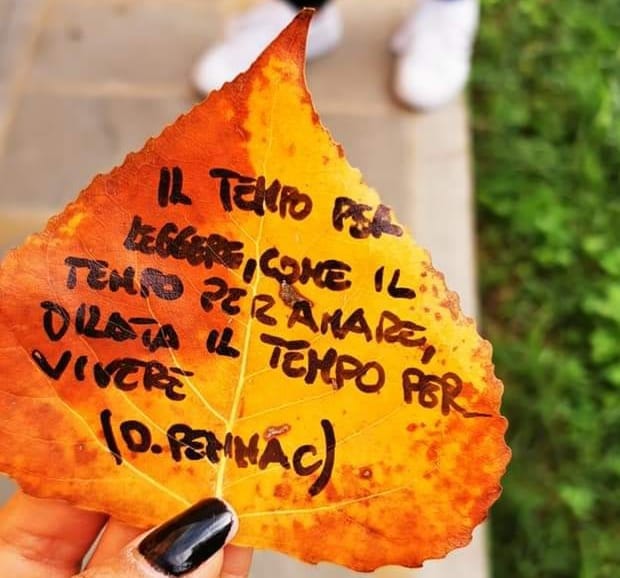 IL TEMPO PER
LEGGERE, COME IL
TEMPO PER AMARE,
DILATA IL TEMPO PER
VIVERE
(D. PENNAC)